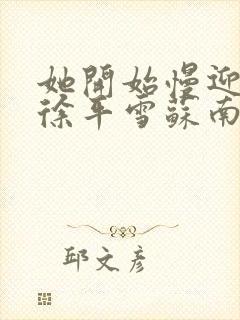 她開始慢迎
徐平雪蘇南
邱文彦